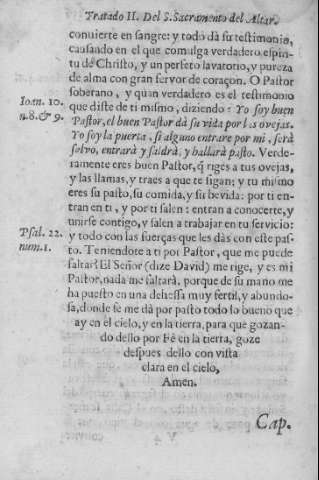 Tratado II. Del S. Sacramento del Altar.
conuierte en sangre: y todo dà su testimonio,
causando en el que comulga verdadero espiri-
tu de Christo, y un perfeto lavatorio, y pureza
de alma con gran fervor de coraçon. O Pastor
soberano, y quan verdadero es el testimonio
Ioan. 10. que diste de ti mismo, diziendo: Yo soy buen
n.8.& 9. Pastor, el buen Pastor dà su vida por las ovejas.
Yo soy la puerta, si alguno entrare por mi, serà
salvo, entrarà y saldrà, y hallarà pasto. Verde-
ramente eres buen Pastor, q̃ riges a tus ovejas,
y las llamas, y traes a que te sigan; y tu mismo
eres su pasto, su comida, y su bevida: por ti en-
tran en ti, y por ti salen: entran a conocerte, y
unirse contigo, y salen a trabajar en tu servicio:
Psal. 22. y todo con las fuerças que les dàs con este pas-
num.1. to. Teniendote a ti por Pastor, que me puede
faltar? El Señor (dize David) me rige, y es mi
Pastor, nada me faltarà, porque de su mano me
ha puesto en una dehessa muy fertil, y abundo-
sa, donde se me dà por pasto todo lo bueno que
ay en el cielo, y en la tierra, para que gozan-
do dello por Fè en la tierra, goze
despues dello con vista
clara en el cielo,
Amen.
Cap.